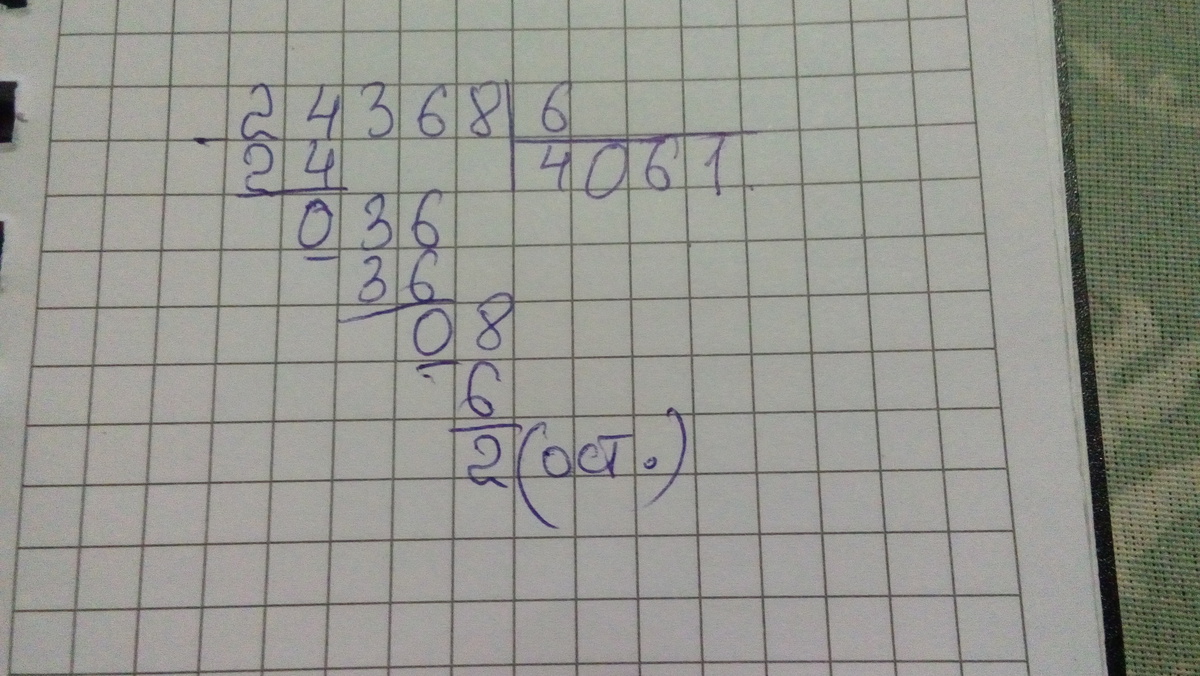 24368 6
24 4061
036
36
08
6
2 (ост.)